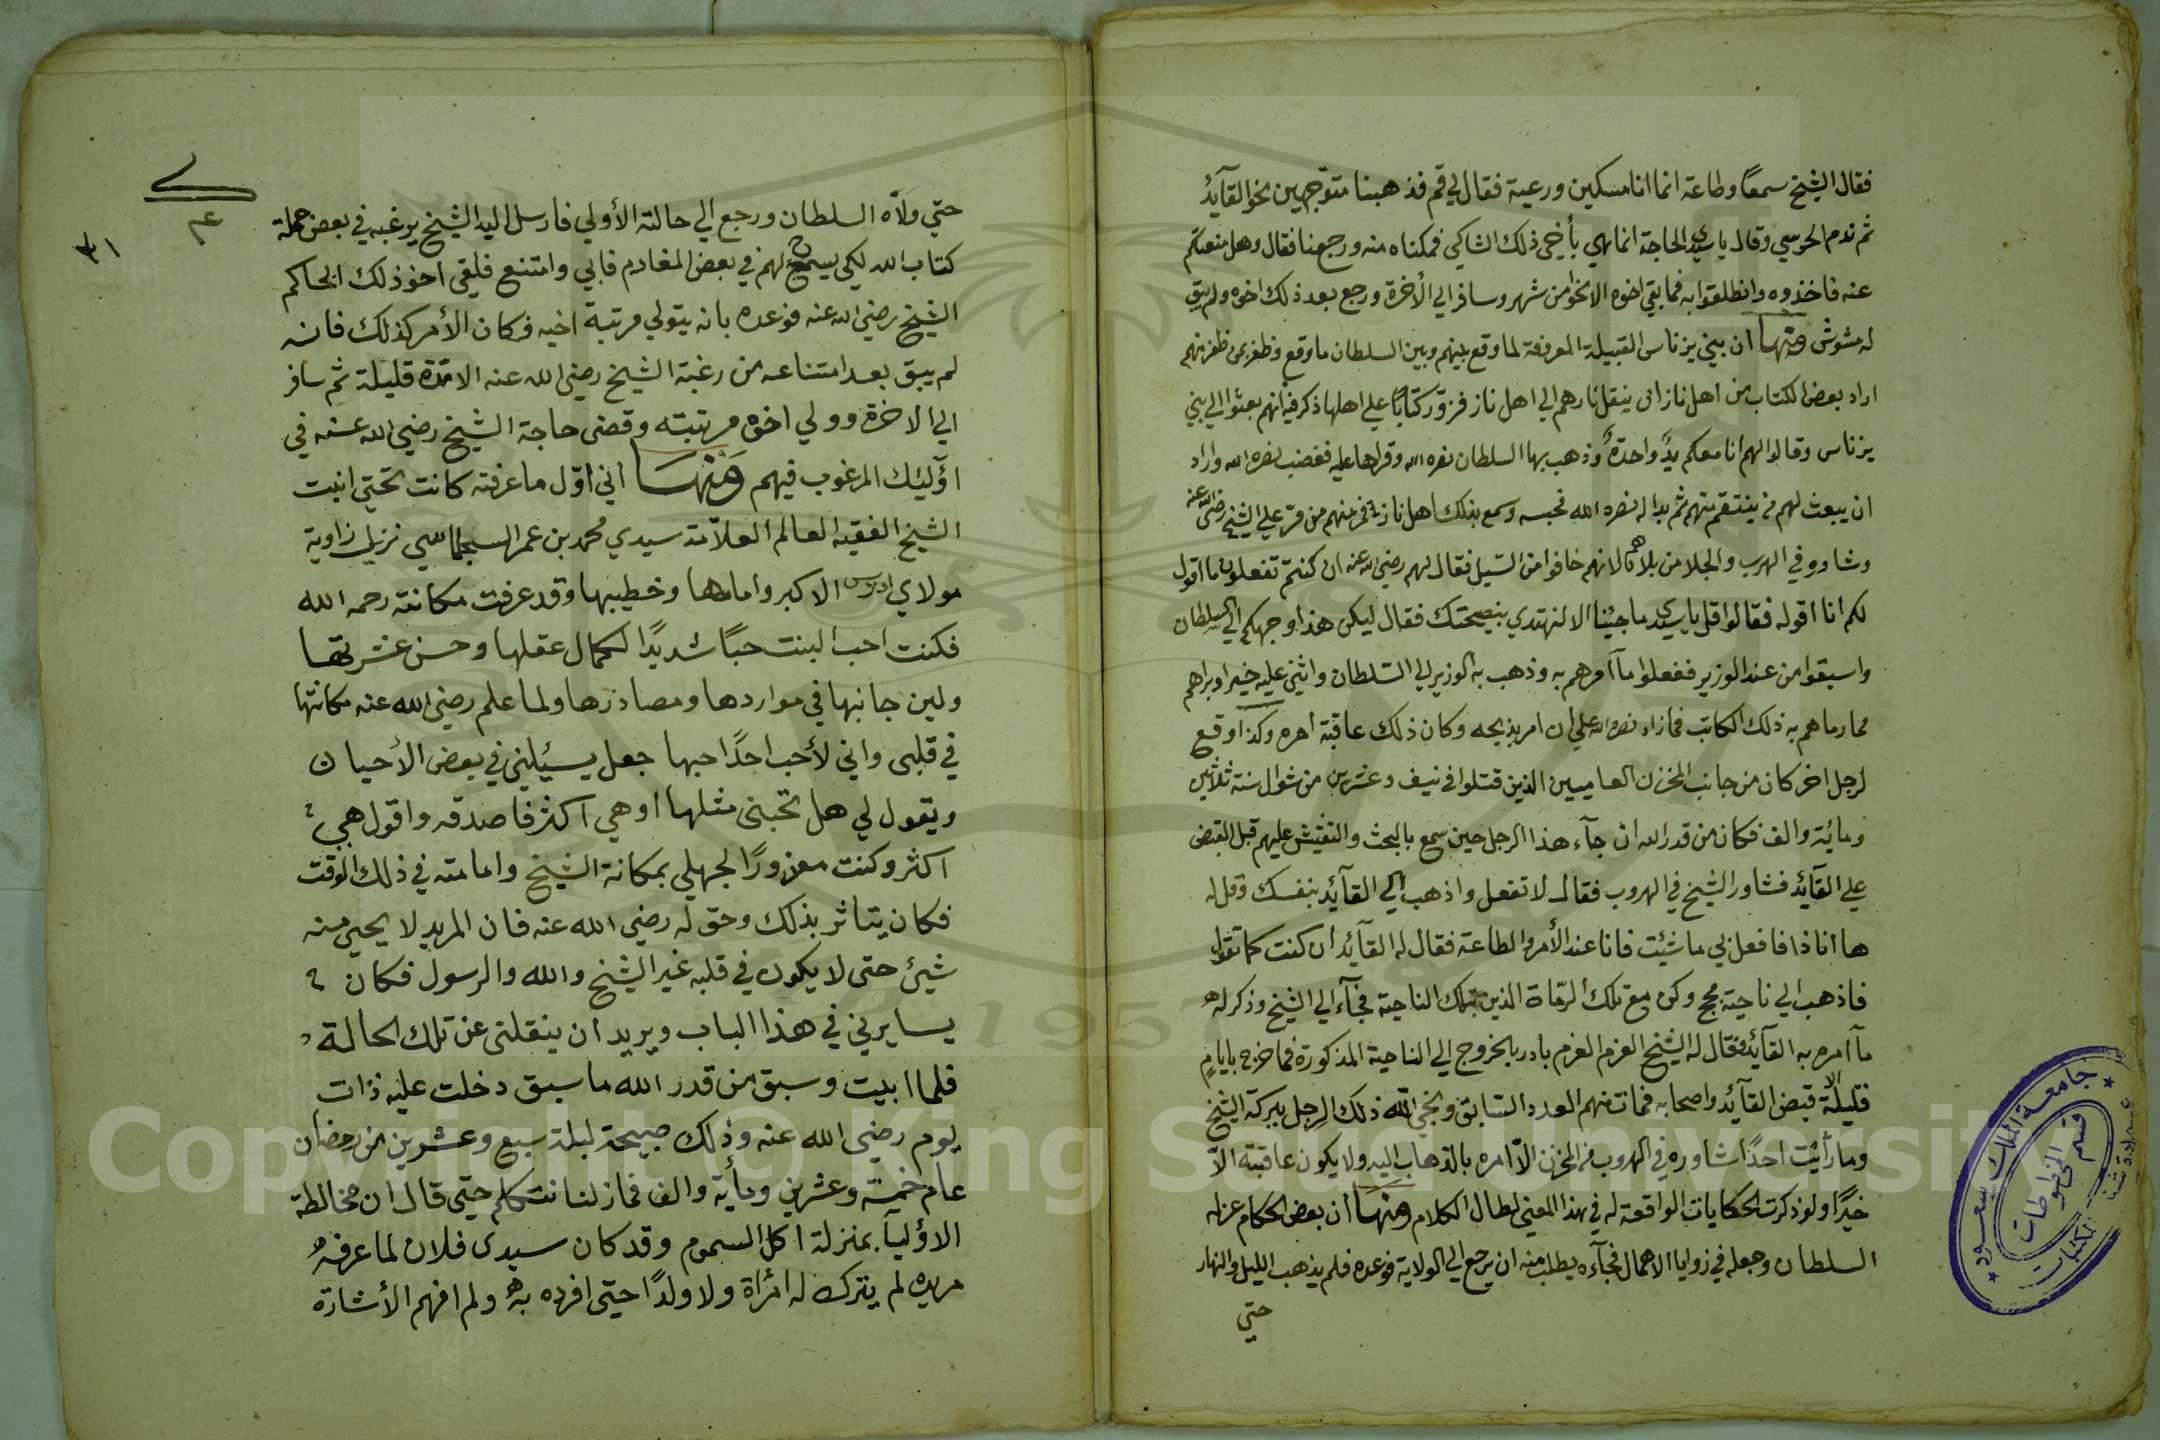 فقال الشيخ سمعًا وطاعة انما انا مسكين ورعية فقال لي قم فذهبنا متوّجهين نحو القآئد
ثم ندم الحرسي وقال ياسيدي الحاجة انما هي بأخي ذلك الشاكي فمكناه منه ورجعنا فقال وهل منعتكم
عنه فاخذوه وانطلقوا به فما بقي اخوه الا نحوا من شهر وسافر الي الأخرة ورجع بعد ذلك اخوه ولم يبق
له مشوش ومنها ان بني يزناس القبيلة المعروفة لما وقع بينهم وبين السلطان ما وقع وظفر بمن ظفر منهم
اراد بعض الكتاب من اهل نازا ان ينقل نارهم الي اهل ناز فزوّر كتابًا علي اهلها ذكر فيه انهم بعثوا الي بني
يزناس وقالوا لهم انا معكم يدٌ واحدةٌ وذهب بها السلطان نصره الله وقراها عليه فغضب نصره الله واراد
ان يبعث لهم من ينتقم منهم ثم بدا له نصره الله فحبسه وسمع بذلك اهل نازا ففر منهم من فر علي الشيخ رضي الله عنه
وشاوروه في الهرب والجلا من بلادهم لانهم خافوا من السيل فقال لهم رضي الله عنه ان كنتم تفعلون ما اقول
لكم انا اقوله فقالوا قل ياسيدي ما جيئنا الا لنهتدي بنصيحتك فقال ليكن هذا وجهكم الي السلطان
واسبقوا من عند الوزير ففعلوا مآ امرهم به وذهب به الوزير الي السلطان واثني عليه خيرا وبراهم
مما رماهم به ذلك الكاتب فمازاد نصره الله علي ان امر بذبحه وكان ذلك عاقبة امره وكذا وقع
لرجل اخر كان من جانب المخزن العاميين الذين قتلوا في نيف وعشرين من شوال سنة ثلاثين
ومائية والف فكان من قدر الله ان جآء هذا الرجل حين سمع بالبحث والتفتيش عليهم قبل القبض
علي القآئد فشاور الشيخ في الهروب فقال لا تفعل واذهب الي القآئد بنفسك وقل له
ها انا ذا فافعل بي ما شيئت فانا عند الأمر والطاعة فقال له القآئد ان كنت كما تقول
فاذهب الي ناحية مجج وكن مع تلك الرماة الذين بتلك الناحية فجآء الي الشيخ وذكر له
مآ امره به القآئد فقال له الشيخ العزم العزم بادر بالخروج الي الناحية المذكورة فما خرج باياٍم
قليلة الا قبض القآئد واصحابه فمات منهم العدد السّابق ونجي اللّه ذلك الرجل ببركة الشيخ
وما رأيت احدًا شاوره في الهروب من المخزن الاّ امره بالذهاب اليه ولا يكون عاقبته الاّ
خيرًا ولو ذكرت الحكايات الواقعة له في هذا المعني لطال الكلام ومنها ان بعض الحكام عزله
السلطان وجعله في زوايا الاهمال فجآءه يطلب منه ان يرجع الي الولاية فوعده فلم يذهب الليل والنهار
حتي
حتي ولاّه السلطان ورجع الي حالته الأولي فارسل اليه الشيخ يرغبه في بعض حملة
كتاب الله لكي يسمح لهم في بعض المغادم فابي وامتنع فلقي اخو ذلك الحاكم
الشيخ رضي الله عنه فوعده بانه يتولي مرتبة اخيه فكان الأمر كذلك فانه
لم يبق بعد امتناعه من رغبة الشيخ رضي الله عنه الا مدّة قليلة ثم سافر
الي الاخرة وولي اخوه مرتبته وقضي حاجة الشيخ رضي الله عنه في
اوّليئك المرغوب فيهم ومنها اني اوّل ما عرفته كانت تحتي ابنت
الشيخ الفقيه العالم العلاّمة سيدي محمد بن عمر السجلماسي نزيل زاوية
مولاي ادريس الاكبر وامامها وخطيبها وقد عرفت مكانته رحمه الله
فكنت احب البنت حبًا شديدًا لكمال عقلها وحسن عشرتها
ولين جانبها في مواردها ومصادرها ولما علم رضي الله عنه مكانتها
في قلبي واني لأحب احدًا حبها جعل يسيئلني في بعض الأحيان
ويقول لي هل تحبني مثلها او هي اكثر فاصدقه واقول هي
اكثر وكنت معزورًا لجهلي بمكانة الشيخ وامامته في ذلك الوقت
فكان يتاثر بذلك وحق له رضي الله عنه فان المريد لا يجيء منه
شيئ حتى لا يكون في قلبه غير الشيخ والله والرسول فكان
يسايرني في هذا الباب ويريد ان ينقلني عن تلك الحالة
فلما ابيت وسبق من قدر الله ما سبق دخلت عليه ذات
يوم رضي الله عنه وذلك صبيحة ليلة سبع وعشرين من رمضان
عام خمسة وعشرين ومأية والف فمازلنا نتكلم حتي قال ان مخالطة
الاوليآء بمنزلة اكل السموم وقد كان سيدي فلان لما عرفه
مريده لم يترك له امرأة ولا ولدًا حتي افرده به ولم افهم الأشارة
٣١
جامعة الملك سعود
قسم المخطوطات
المكتبات
1957
Copyright © King Saud University